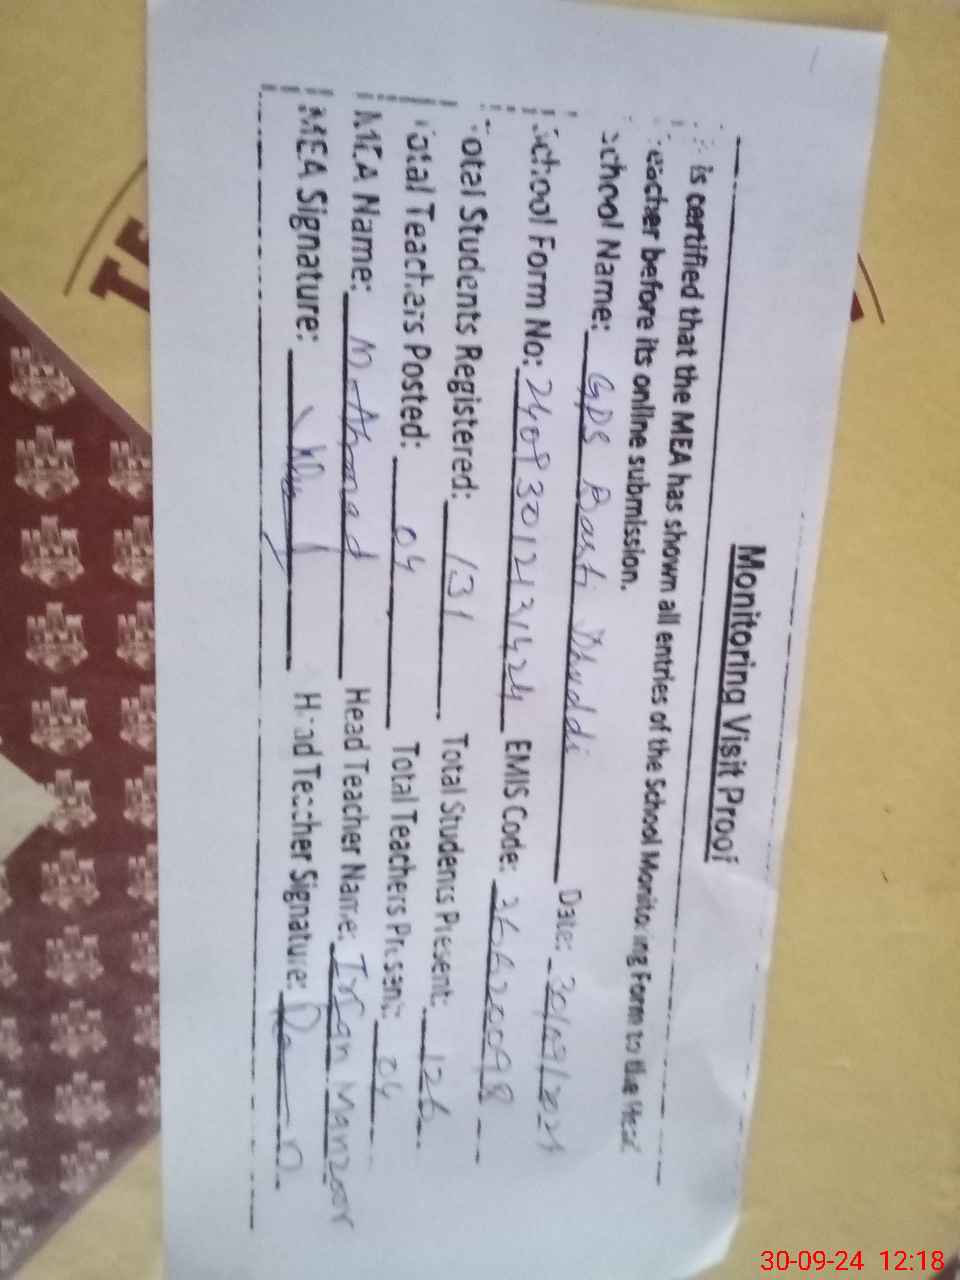 Monitoring Visit Proof
is certified that the MEA has shown all entries of the School Monitoring Form to the Head
Teacher before its online submission.
School Name: GPS Basti Dhuddi Date: 30/09/2024
School Form No: EMIS Code:
Total Students Registered: 131 Total Students Present: 126
Total Teachers Posted: 04 Total Teachers Present: 04
MEA Name: M. Ahmad Head Teacher Name: Irfan Manzoor
MEA Signature: Head Teacher Signature:
30-09-24 12:18